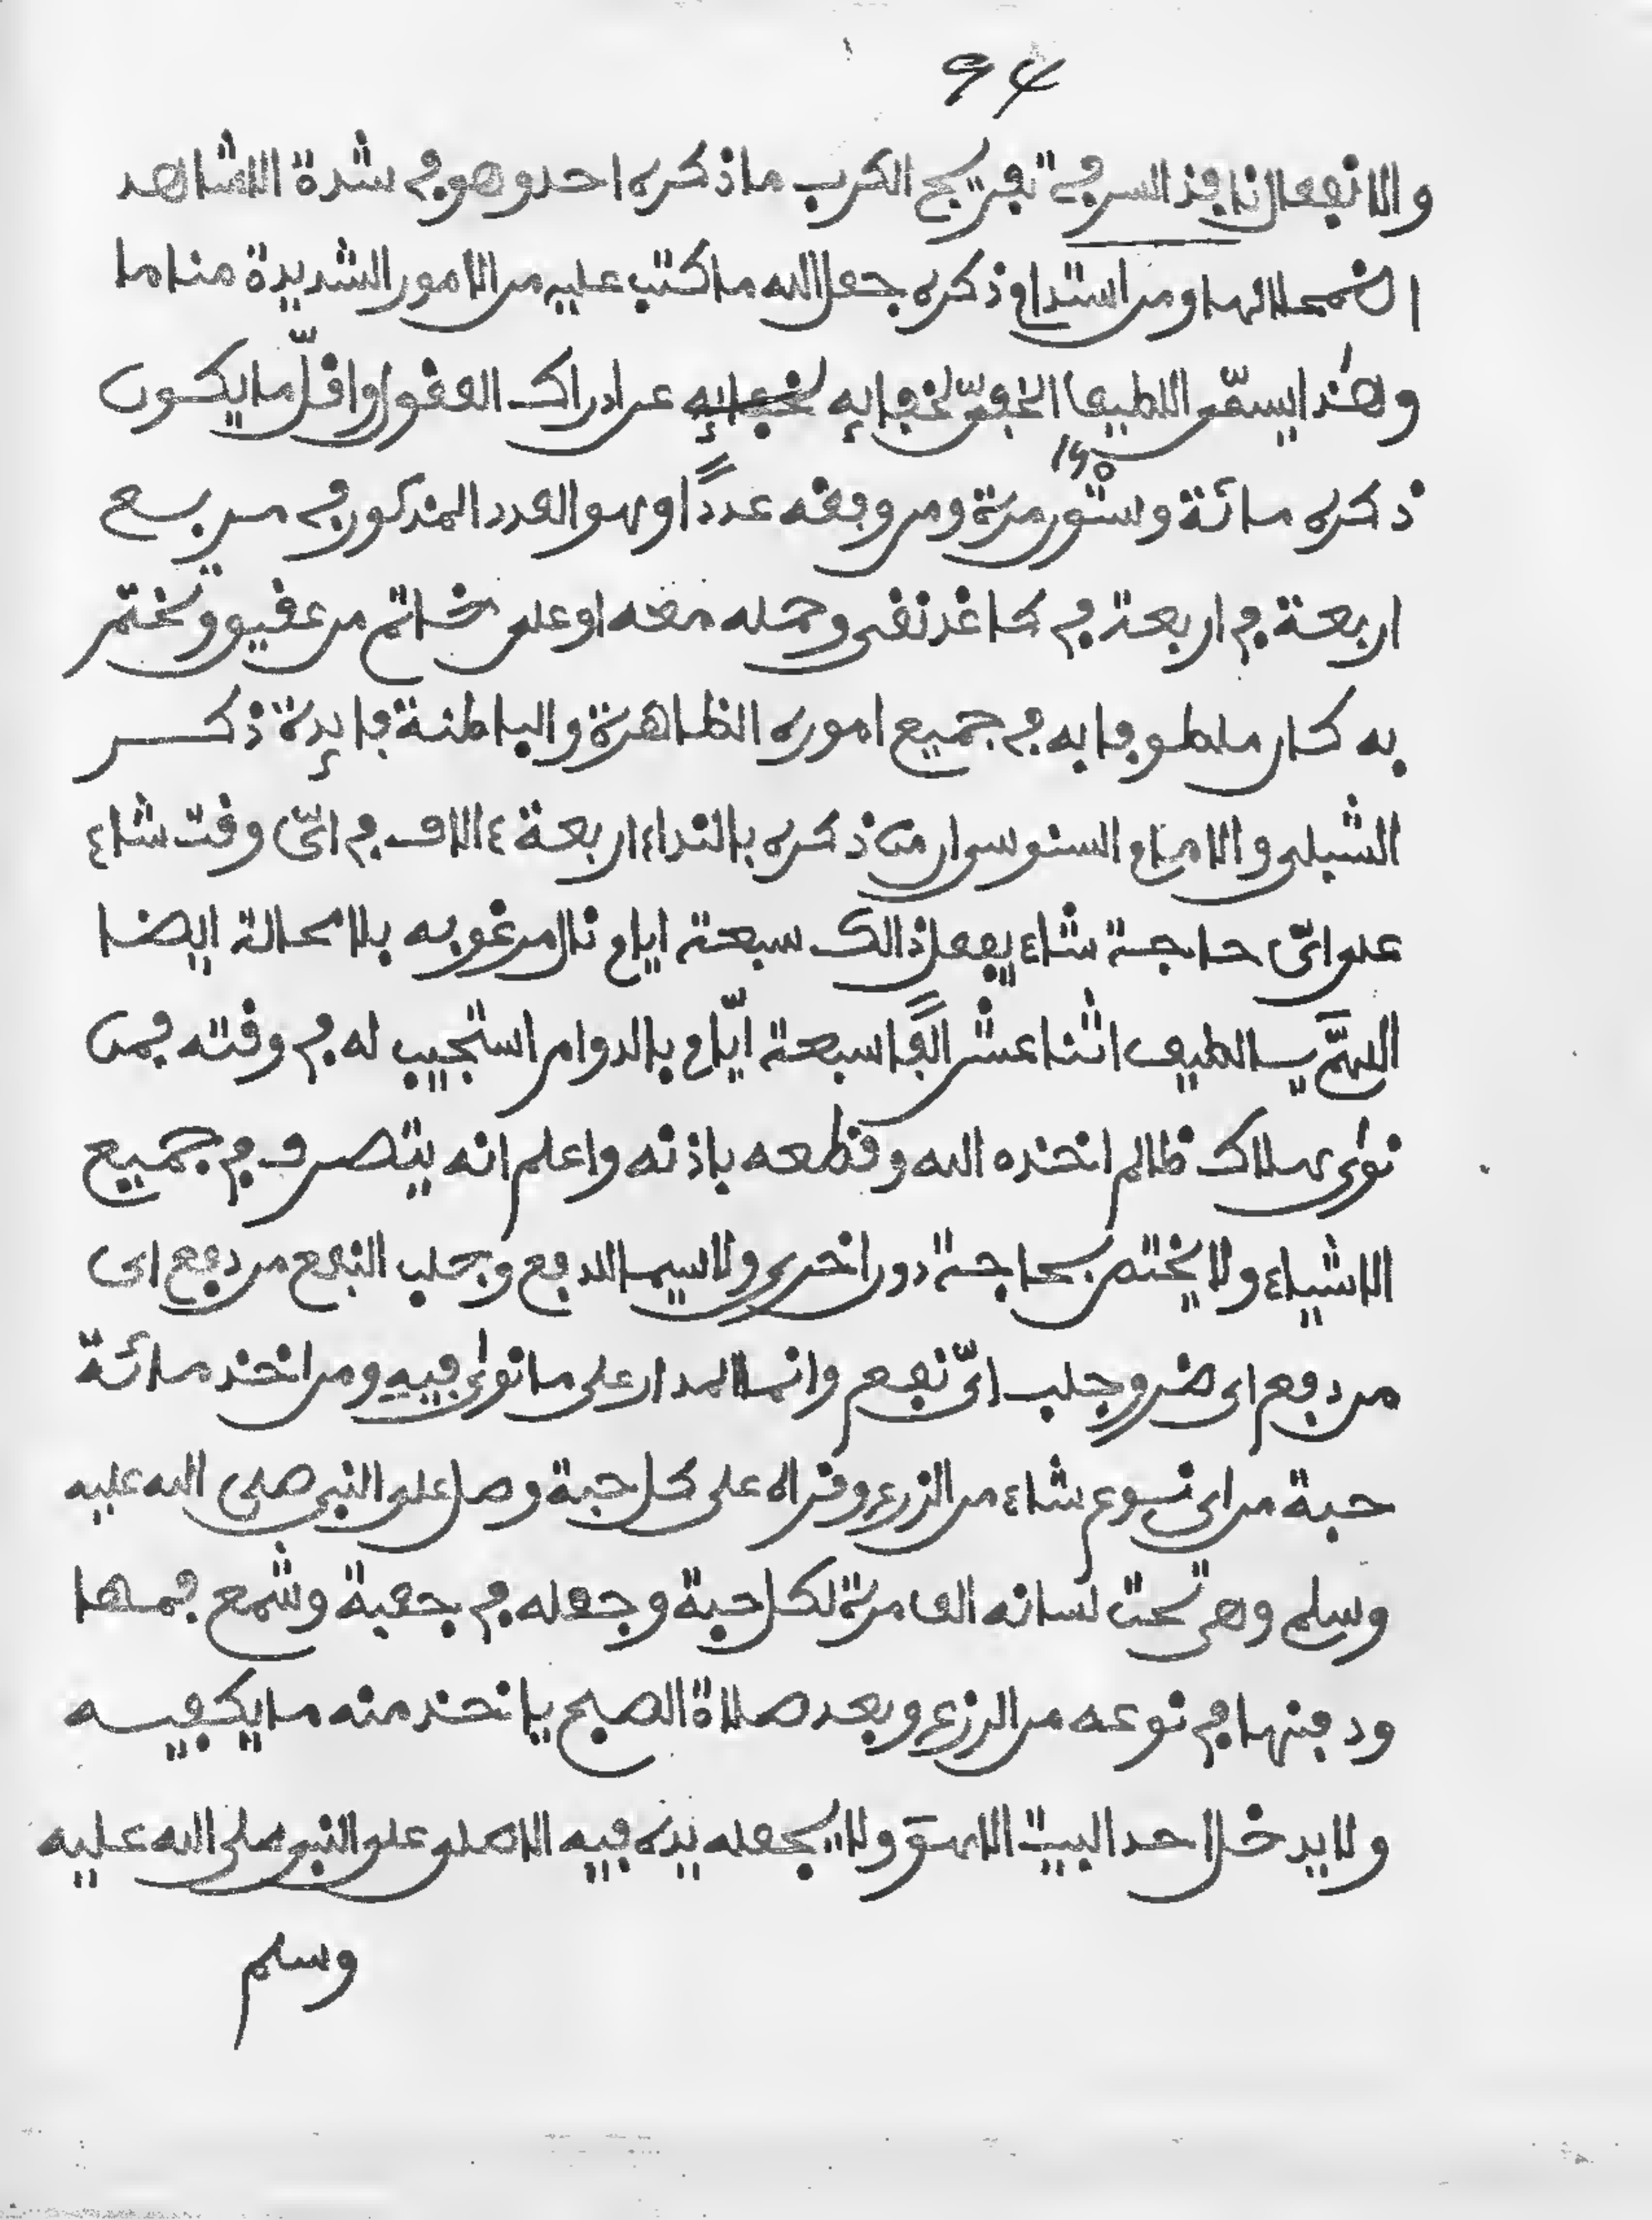 94
والانفعال نافذ السر في تفريج الكرب ما ذكره احد وهو في شدة الا شاهد
اضمحلالها ومن استدام ذكره جعل الله ما كتب عليه من الامور الشديدة مناما
وهذا يسمّى اللطيف الخفيّ لخفايه عن ادراك العقول واقلّ ما يكون
160
ذكره مائة وستون مرة ومن وفقه عددًا وهو العدد المذكور في مربع
اربعة في اربعة في كاغد نقي وحمله معه او على خاتم من عقيق وتختم
به كان ملطوفا به في جميع اموره الظاهرة والباطنة فايدة ذكر
الشبلي والامام السنوسي ان من ذكره بالنداء اربعة ٤ الاف في ايّ وقت شاء
على ايّ حاجة شاء يفعل ذالك سبعة ايام نال مرغوبه بلا محالة ايضا
اللهمّ يا لطيف اثنا عشر الفًا سبعة ايّام بالدوام استجيب له في وقته فمن
نوى هلاك ظالم اخذه الله وقطعه باذنه واعلم انه يتصرف في جميع
الاشياء ولا يختص بحاجة دون اخرى ولاسيما الدفع وجلب النفع من دفع اي
من دفع اي ضر وجلب ايّ نفع وانما المدار على ما نوى فيه ومن اخذ مائة
حبة من اي نوع شاء من الزرع وقراه على كل حبة وصل على النبي صلى الله عليه
وسلم وهي تحت لسانه الف مرة لكل حبة وجعله في جعبة وشمع فمها
ودفنها في نوعه من الزرع وبعد صلاة الصبح ياخذ منه ما يكفيه
ولا يدخل احد البيت الا هو ولا يجعله يده فيه الا صلى على النبي صلى الله عليه
وسلم